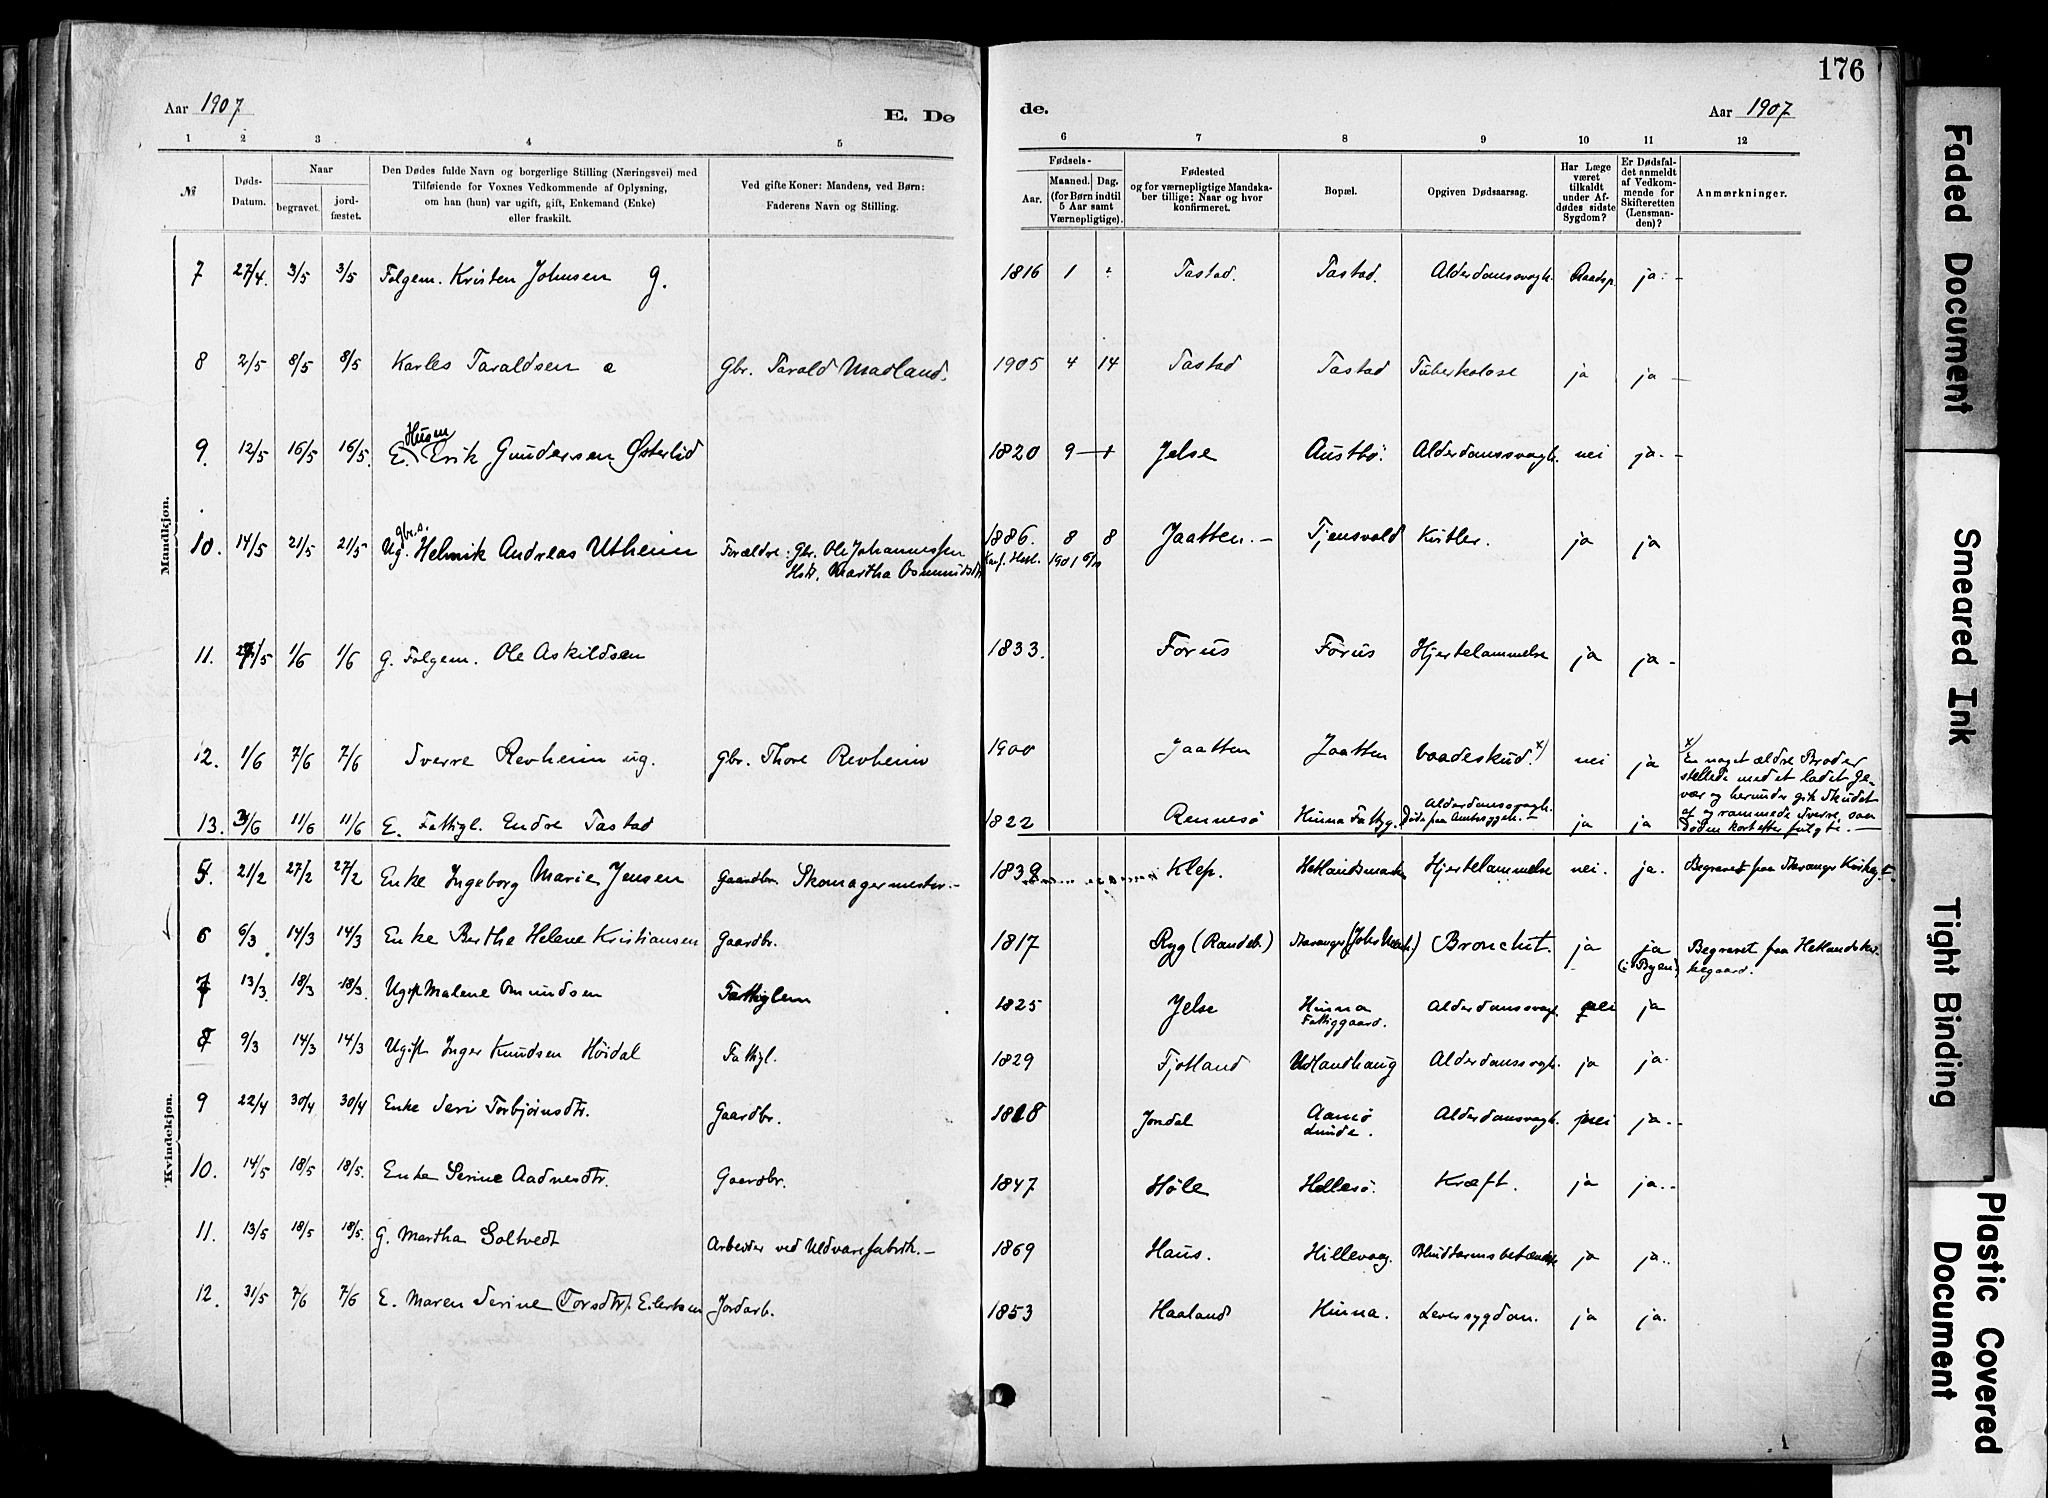 176
Aar 1907
E. Dø
de.
Aar 1907
1 2 3 4 5 6 7 8 9 10 11 12
№
Døds-Datum.
Naar
begravet.
jord-fæstet.
Den Dødes fulde Navn og borgerlige Stilling (Næringsvei) med
Tilføiende for Voxnes Vedkommende af Oplysning,
om han (hun) var ugift, gift, Enkemand (Enke)
eller fraskilt.
Ved gifte Koner: Mandens, ved Børn:
Faderens Navn og Stilling.
Fødsels-
Aar.
Maaned. Dag.
(for Børn indtil
5 Aar samt
Værnepligtige).
Fødested
og for værnepligtige Mandska-
ber tillige: Naar og hvor
konfirmeret.
Bopæl.
Opgiven Dødsaarsag.
Har Læge
været
tilkaldt
under Af-
dødes sidste
Sygdom?
Er Dødsfal-
det anmeldt
af Vedkom-
mende for
Skifteretten
(Lensman-
den)?
Anmærkninger.
Mandkjøn.
7 27/4. 3/5 3/5 Folgem. Kristen Johnsen g. 1816 1 Tastad. Tastad. Alderdomssvagh. Raadsp. ja.-
8 2/5 8/5 8/5 Karles Taraldsen Gbr. Tarald Madland. 1905 4 14 Tastad Tastad Tuberkolose ja ja -
Husm
9. 12/5 16/5 16/5. E. Erik Gundersen Østerlid 1820 9 Jelse Austbö. Alderdomssvagh. nei ja.-
gbr.s.
10. 14/5 21/5 21/5 Ug. Helmik Andreas Utheim Forældre: Gbr. Ole Johannessen 1886. 8 8 Jaatten.- Tjensvold ja ja
Hstr. Martha Osmundsdtr Konf. Hetl. 1901
11. 1/6 1/6 g. Folgem. Ole Askildsen 1833. Forus Forus Hjertelammelse ja ja-
12. 1/6 7/6 7/6 Sverre Revheim ug. Gbr. Thore Revheim 1900 Jaatten Jaatten Vaadeskud. x) nei ja x) En noget ældre Broder
stellede med et ladet Ge-
vær og herunder gik Skudet
af og rammede Sverre, saa
Döden kort efter fulgte.-
13. 3/6 11/6 11/6 E. Fattigl. Endre Tastad 1822 Rennesö Hinna Fattigg. Alderdomssvagh. ja ja
Kvindekjøn.
5. 21/2 27/2 27/2 Enke Ingeborg Marie Jensen Gaardbr. Skomagermester.- Klep. Hetlandsmarken Hjertelammelse nei. ja. Begravet paa Stavanger Kirkeg.
6 6/3 14/3 14/3 Enke Berthe Helene Kristiansen Gaardbr. 1817 Ryg (Randeb.) Stavanger Bronchit. ja ja (i Byen) Begravet paa Hetlands Kir-
kegaard.
7 13/3 18/3 18/3. Ugift Malene Omundsen Fattiglem 1825 Jelse Hinna Fattiggaard. Alderdomssvagh. nei ja
8 9/3 14/3 14/3 Ugift Inger Knudsen Höidal Fattigl. 1829 Fjotland Udlandhaug Alderdomssvagh. ja ja.
9 22/4 30/4 30/4 Enke Seri Torbjörnsdtr. Gaardbr. 1818 Jondal Aamö Lunde. Alderdomssvagh. nei ja.-
10. 14/5 18/5 18/5. Enke Serine Aadnesdtr. Gaardbr. 1847 Höle Hellesö. Kræft. ja ja..
11. 13/5 18/5 18/5. G. Martha Soltvedt Arbeider ved Uldvarefabrik.- 1869 Haus. Hillevaag. Blindtarmsbetændelse ja ja..
12. 31/5 7/6 7/6 E. Maren Serine (Torsdtr). Eilertsen Jordarb. 1853 Haaland Hinna. Leversygdom. ja ja.
Faded Document
Smeared Ink
Tight Binding
Plastic Covered
Document